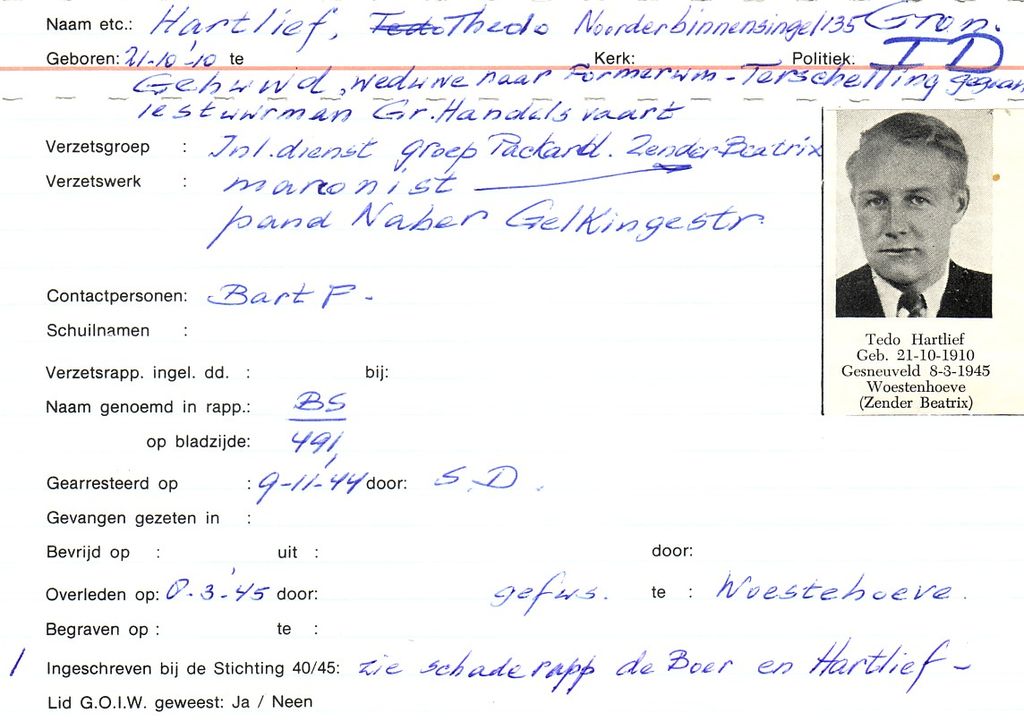 Naam etc.: Hartlief, Tedo Thedo Noorderbinnensingel 135 Gron.
Geboren: 21-10-'10 te Kerk: Politiek: I D
Gehuwd, weduwe naar Formerum - Terschelling gegaan
1e stuurman Gr. Handelsvaart
Verzetsgroep : Inl. dienst groep Packard. Zender Beatrix
Verzetswerk : marconist
pand Naber Gelkingestr.
Contactpersonen: Bart F.
Schuilnamen :
Verzetsrapp. ingel. dd. : bij:
Naam genoemd in rapp.: BS
op bladzijde: 491,
Gearresteerd op : 9-11-'44 door: S.D.
Gevangen gezeten in :
Bevrijd op : uit : door:
Overleden op: 8-3-'45 door: gefus. te : Woestehoeve.
Begraven op : te :
1 Ingeschreven bij de Stichting 40/45: zie schaderapp de Boer en Hartlief -
Lid G.O.I.W. geweest: Ja / Neen
Tedo Hartlief
Geb. 21-10-1910
Gesneuveld 8-3-1945
Woestenhoeve
(Zender Beatrix)